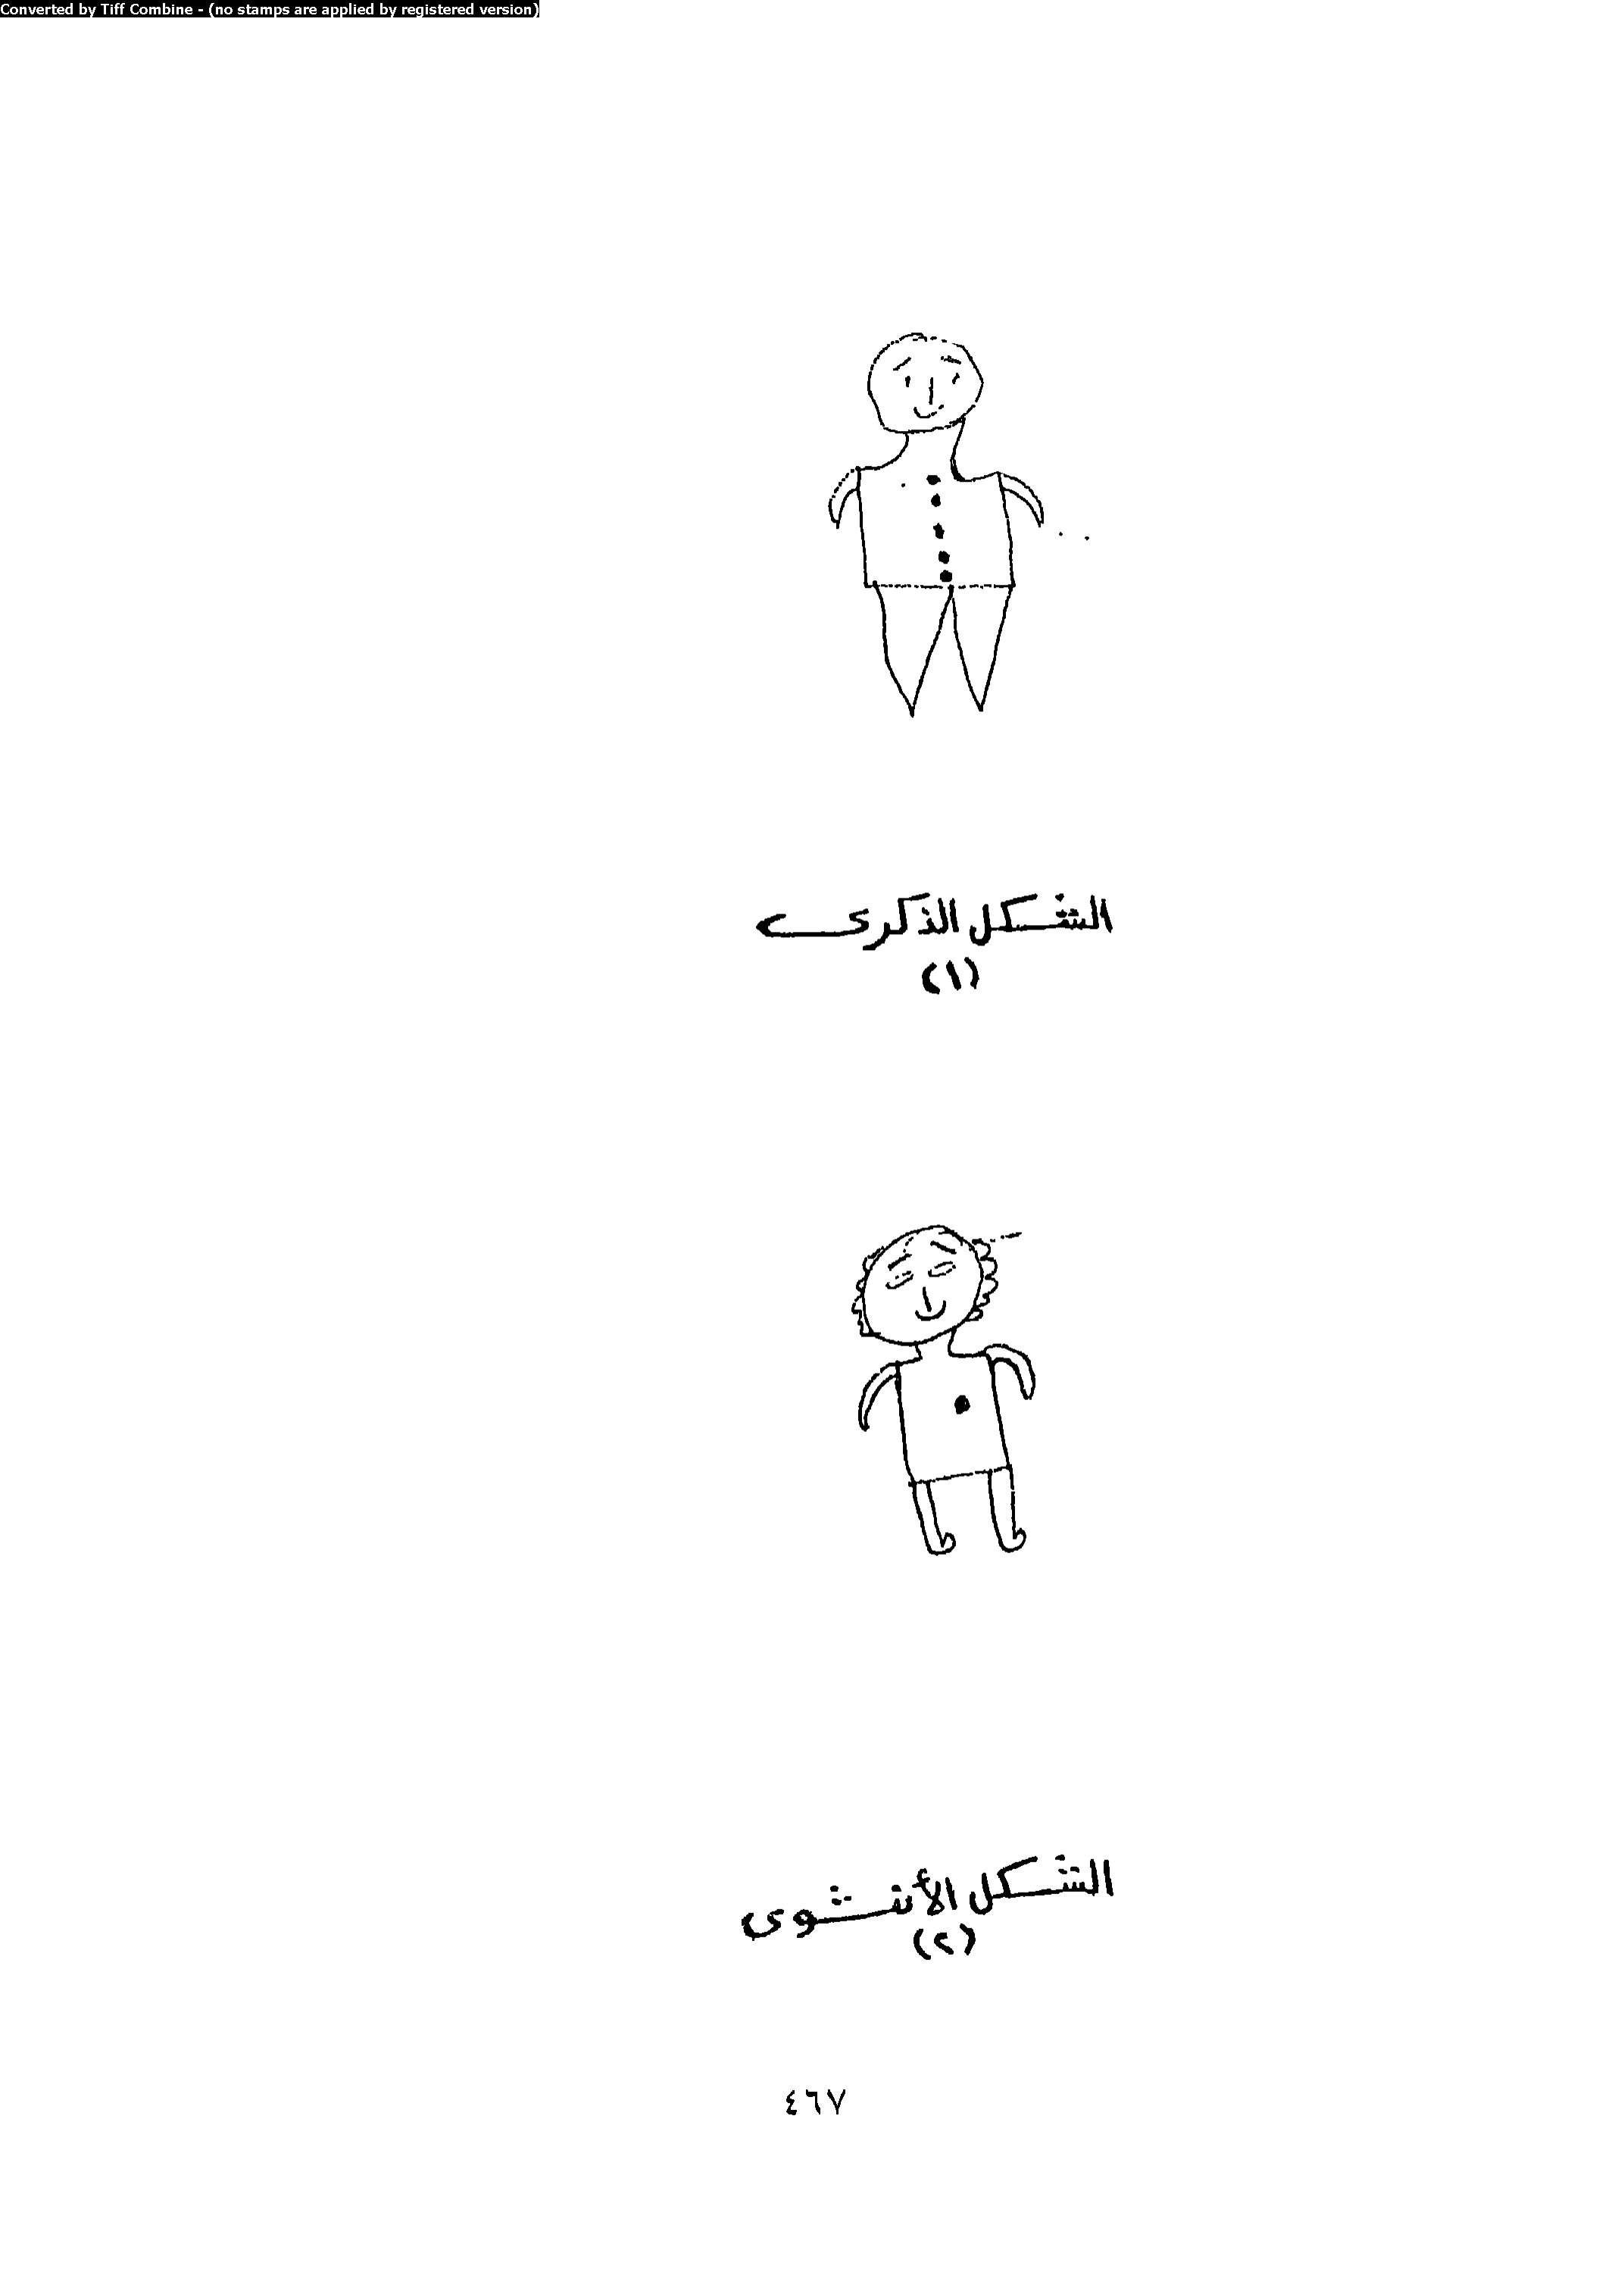 Converted by Tiff Combine - (no stamps are applied by registered version)
الشكل الذكرى
(١)
الشكل الأنثوى
(٢)
٤٦٧